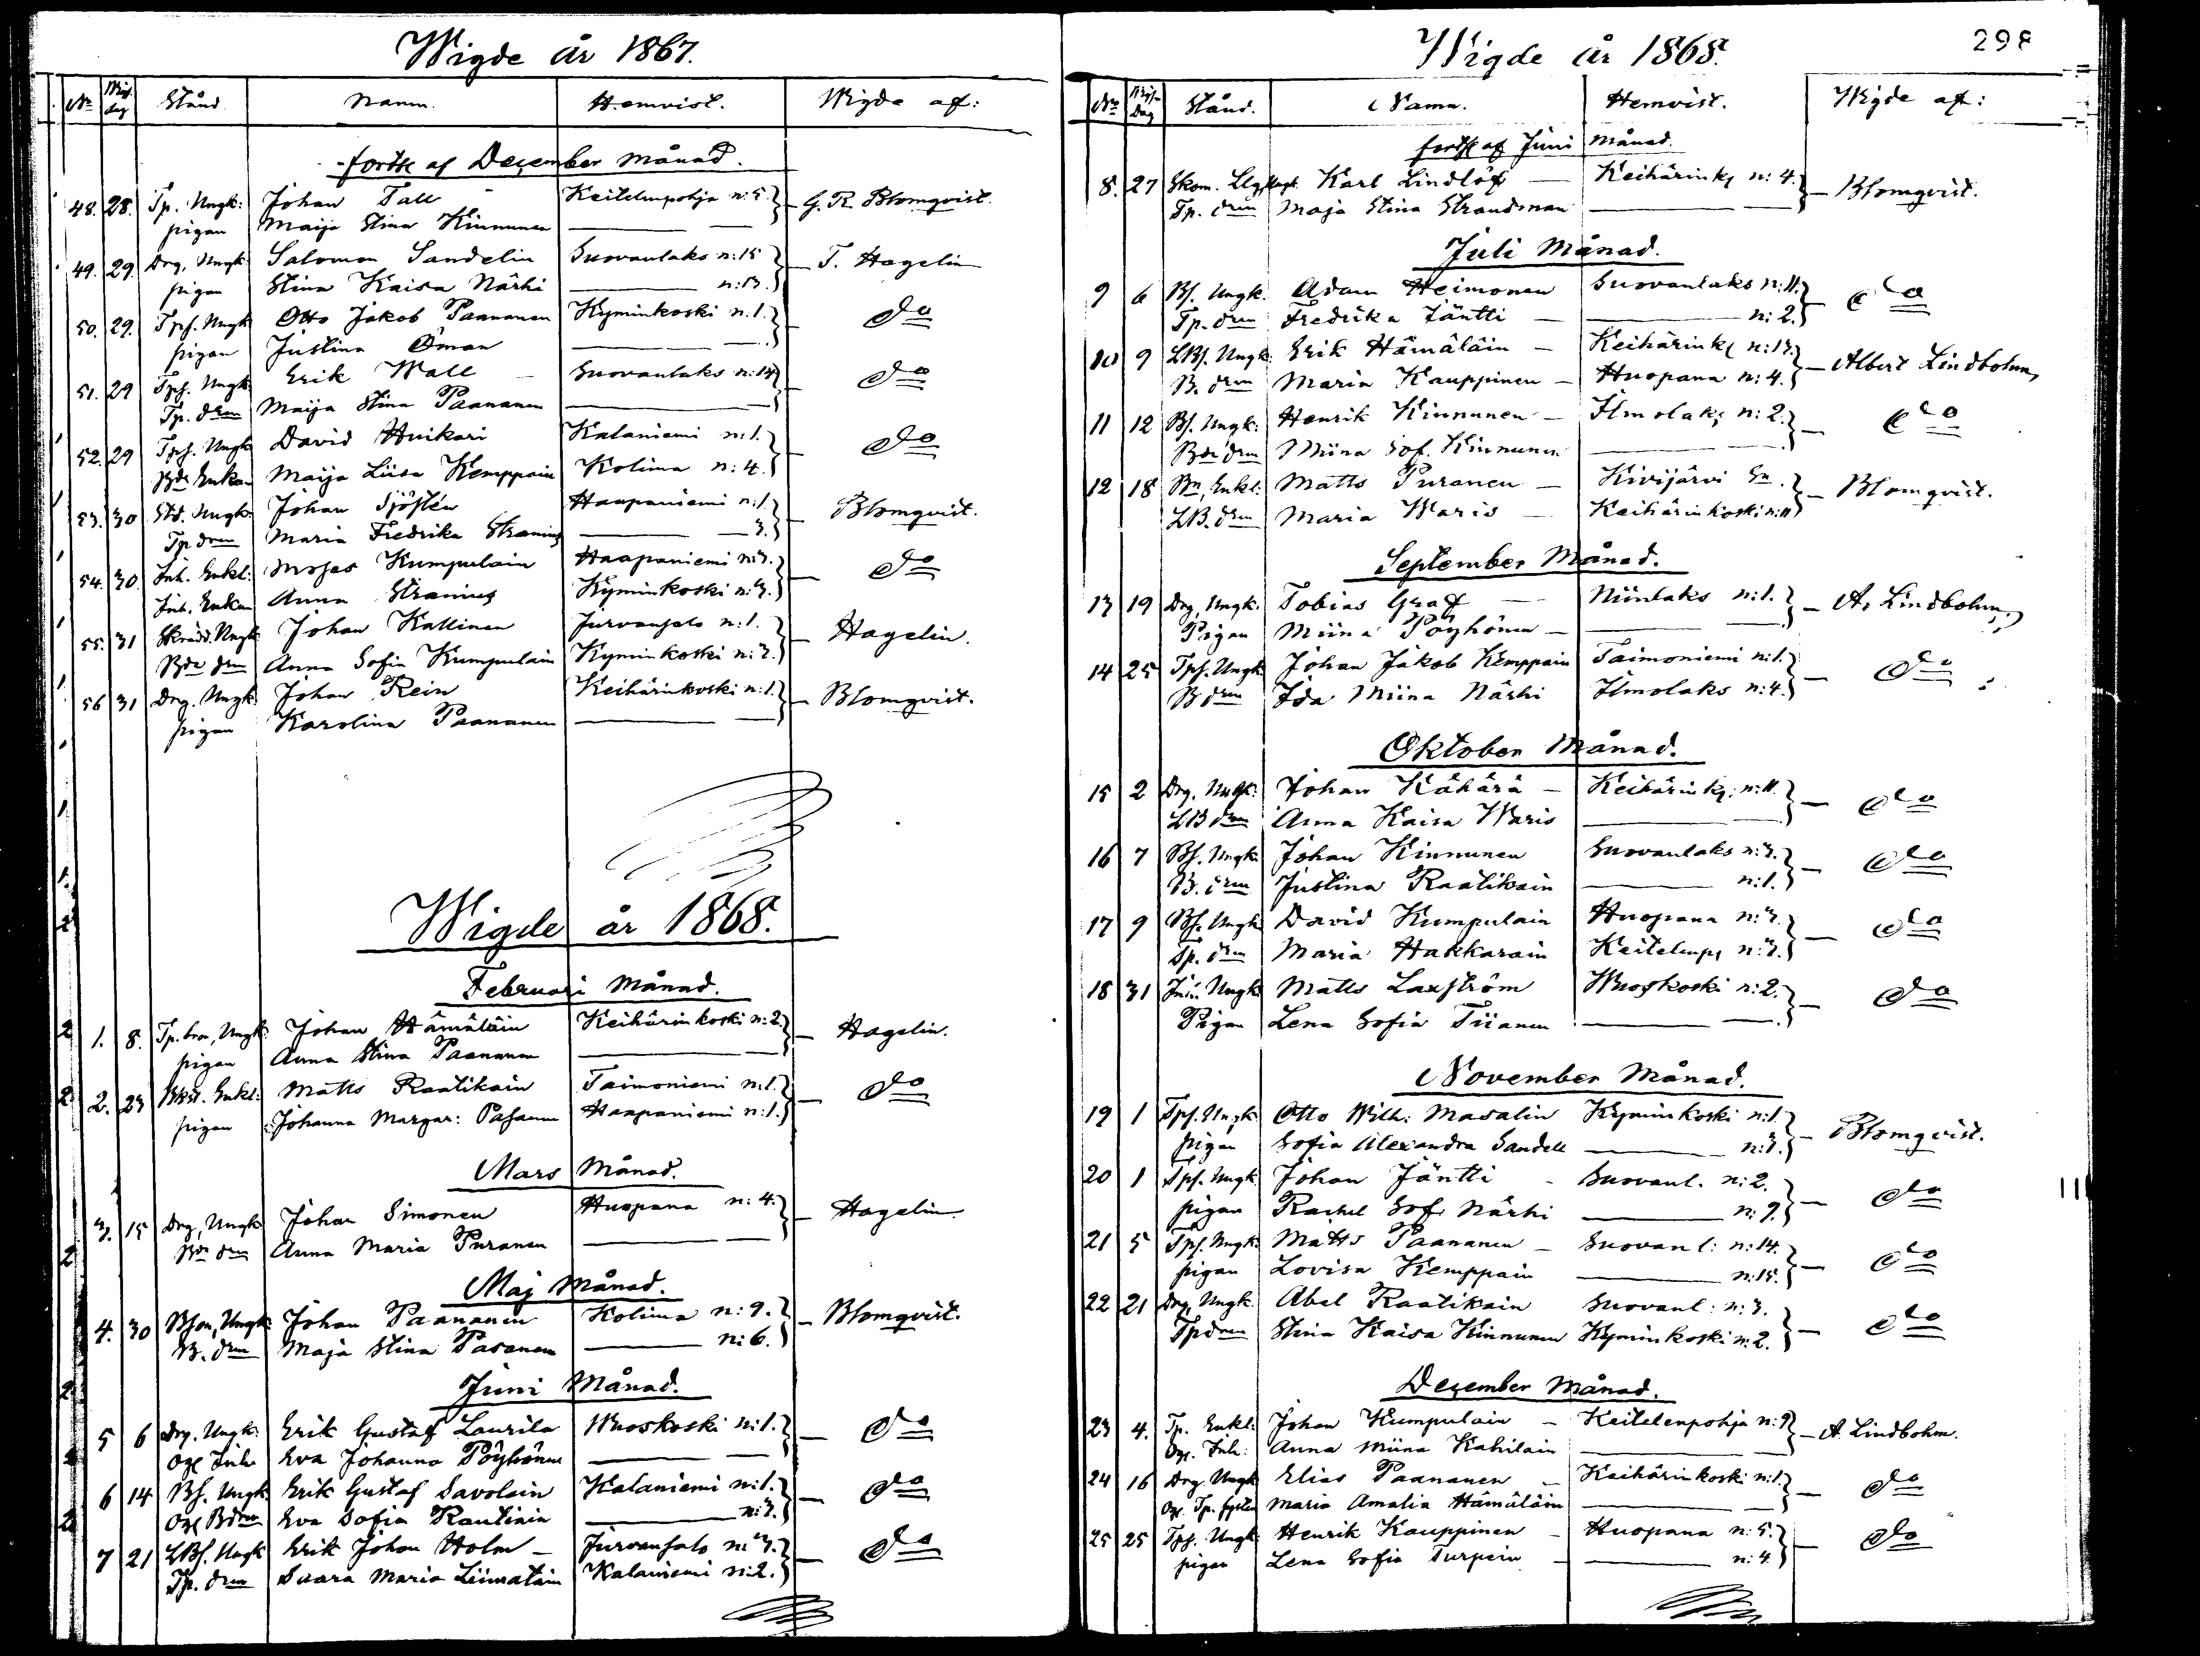 Wigde år 1867.
No Wig. dag Stånd Namn. Hemvist. Wigde af:
forts af December Månad.
48. 28. Tp. Ungk: Johan Tall Keitelenpohja n:5. G. R. Blomqvist.
pigan Maija Stina Kinnunen
49. 29. Drg. Ungk. Salomon Sandelin Suovanlaks n:15 T. Hagelin
pigan Stina Kaisa Närhi n:13.
50. 29. Tpf. Ungk Otto Jakob Paananen Kyminkoski n.1. do
pigan Justina Öman
51. 29 Tpf. Ungk. Erik Wall Suovanlaks n:14 do
Tp. drn Maija Stina Paananen
52. 29 Tpf. Ungk David Huikari Kalaniemi n:1. do
Bde Enkan Maija Liisa Kemppain Kolima n:4.
53. 30 Std. Ungk. Johan Sjöstén Haapaniemi n:1 Blomqvist.
Tp drn Maria Fredrika Stranius 3.
54. 30. Inh. Enkl: Moses Kumpulain Haapaniemi n:3. do
Inh. Enkan Anna Stranius Kyminkoski n:3.
55. 31 Skrädd. Ungk Johan Kallinen Jurvansalo n:1. Hagelin.
Bde drn Anna Sofia Kumpulain Kyminkoski n:3.
56 31 Drg. Ungk. Johan Rein Keihärinkoski n:1. Blomqvist.
pigan Karolina Paananen
Wigde år 1868.
Februari Månad.
1. 8. Tp. bror, Ungk: Johan Hämäläin Keihärinkoski n:2. Hagelin.
pigan Anna Stina Paananen
2. 23 Enkl: Matts Raatikain Taimoniemi n:1. do
pigan Johanna Margar: Pasanen Haapaniemi n:1.
Mars Månad.
3. 15 Drg, Ungk Johan Simonen Huopana n:4. Hagelin.
Bde drn Anna Maria Puranen
Maj Månad.
4. 30 Bson, Ungk Johan Paananen Kolima n:9. Blomqvist.
B. drn Maja Stina Pasanen n:6.
Juni Månad.
5 6 Drg. Ungk: Erik Gustaf Laurila Wuoskoski n:1. do
Ogf Inh. Eva Johanna Pöyhönen
6 14 Bf. Ungk. Erik Gustaf Savolain Kalaniemi n:1. do
Ogf Bdrn Eva Sofia Rautiain n:3.
7 21 LBf. Ungk Erik Johan Holm Jurvansalo n:3. do
Tp. drn Saara Maria Liimatain Kalaniemi n:2.
Wigde år 1868.
298
No Wig-Dag Stånd. Namn. Hemvist. Wigde af:
forts af Juni Månad.
8. 27 Karl Lindlöf Keihärinks n:4. Blomqvist.
Tp. drn Maja Stina Strandman
Juli Månad.
9 6 Bf. Ungk. Adam Heimonen Suovanlaks n:11. do
Tp. drn Fredrika Jäntti n:2.
10 9 LBf. Ungk: Erik Hämäläin Keihärinks n:13. Albert Lindbohm,
B. drn Maria Kauppinen Huopana n:4.
11 12 Bf. Ungk: Henrik Kinnunen Ilmolaks n:2. do
Bde drn Miina Sof. Kinnunen
12 18 Bn, Enkl: Matts Puranen Kivijärvi Sn. Blomqvist.
LB. drn Maria Waris Keihärinkoski n:11
September Månad.
13 19 Drg, Ungk: Tobias Graf Niinlaks n:1. A. Lindbohm,
Pigan Miina Pöyhönen
14 25 Tpf. Ungk. Johan Jakob Kemppain Taimoniemi n:1. do
B drn Ida Miina Närhi Ilmolaks n:4.
Oktober Månad.
15 2 Drg, Ungk: Johan Kähärä Keihärinks. n:11. do
LB drn Anna Kaisa Waris
16 7 Bf. Ungk Johan Kinnunen Suovanlaks n:3. do
B. drn Justina Raatikain n:1.
17 9 Bf. Ungk David Kumpulain Huopana n:3. do
Tp. drn Maria Hakkarain Keitelenps n:3.
18 31 Inh. Ungk Matts Laxström Wuoskoski n:2. do
Pigan Lena Sofia Tiianen
November Månad.
19 1 Tpf. Ungk Otto Wilh: Masalin Kyminkoski n:1 Blomqvist.
pigan Sofia Alexandra Sandell n:3.
20 1 Tpf. Ungk Johan Jäntti Suovanl. n:2. do
pigan Rachel Sof. Närhi n:9.
21 5 Tpf. Ungk: Matts Paananen Suovanl: n:14. do
pigan Lovisa Kemppain n:15.
22 21 Drg, Ungk. Abel Raatikain Suovanl: n:3. do
Tp drn Stina Kaisa Kinnunen Kyminkoski n:2.
December Månad.
23 4. Tp. Enkl: Johan Kumpulain Keitelenpohja n:9 A. Lindbohm.
Ogf. Inh: Anna Miina Kahilain
24 16 Drg Ungk Elias Paananen Keihärinkoski n:1. do
Ogf. Tp. syster Maria Amalia Hämäläin
25 25 Tpf. Ungk Henrik Kauppinen Huopana n:5. do
pigan Lena Sofia Turpein n:4